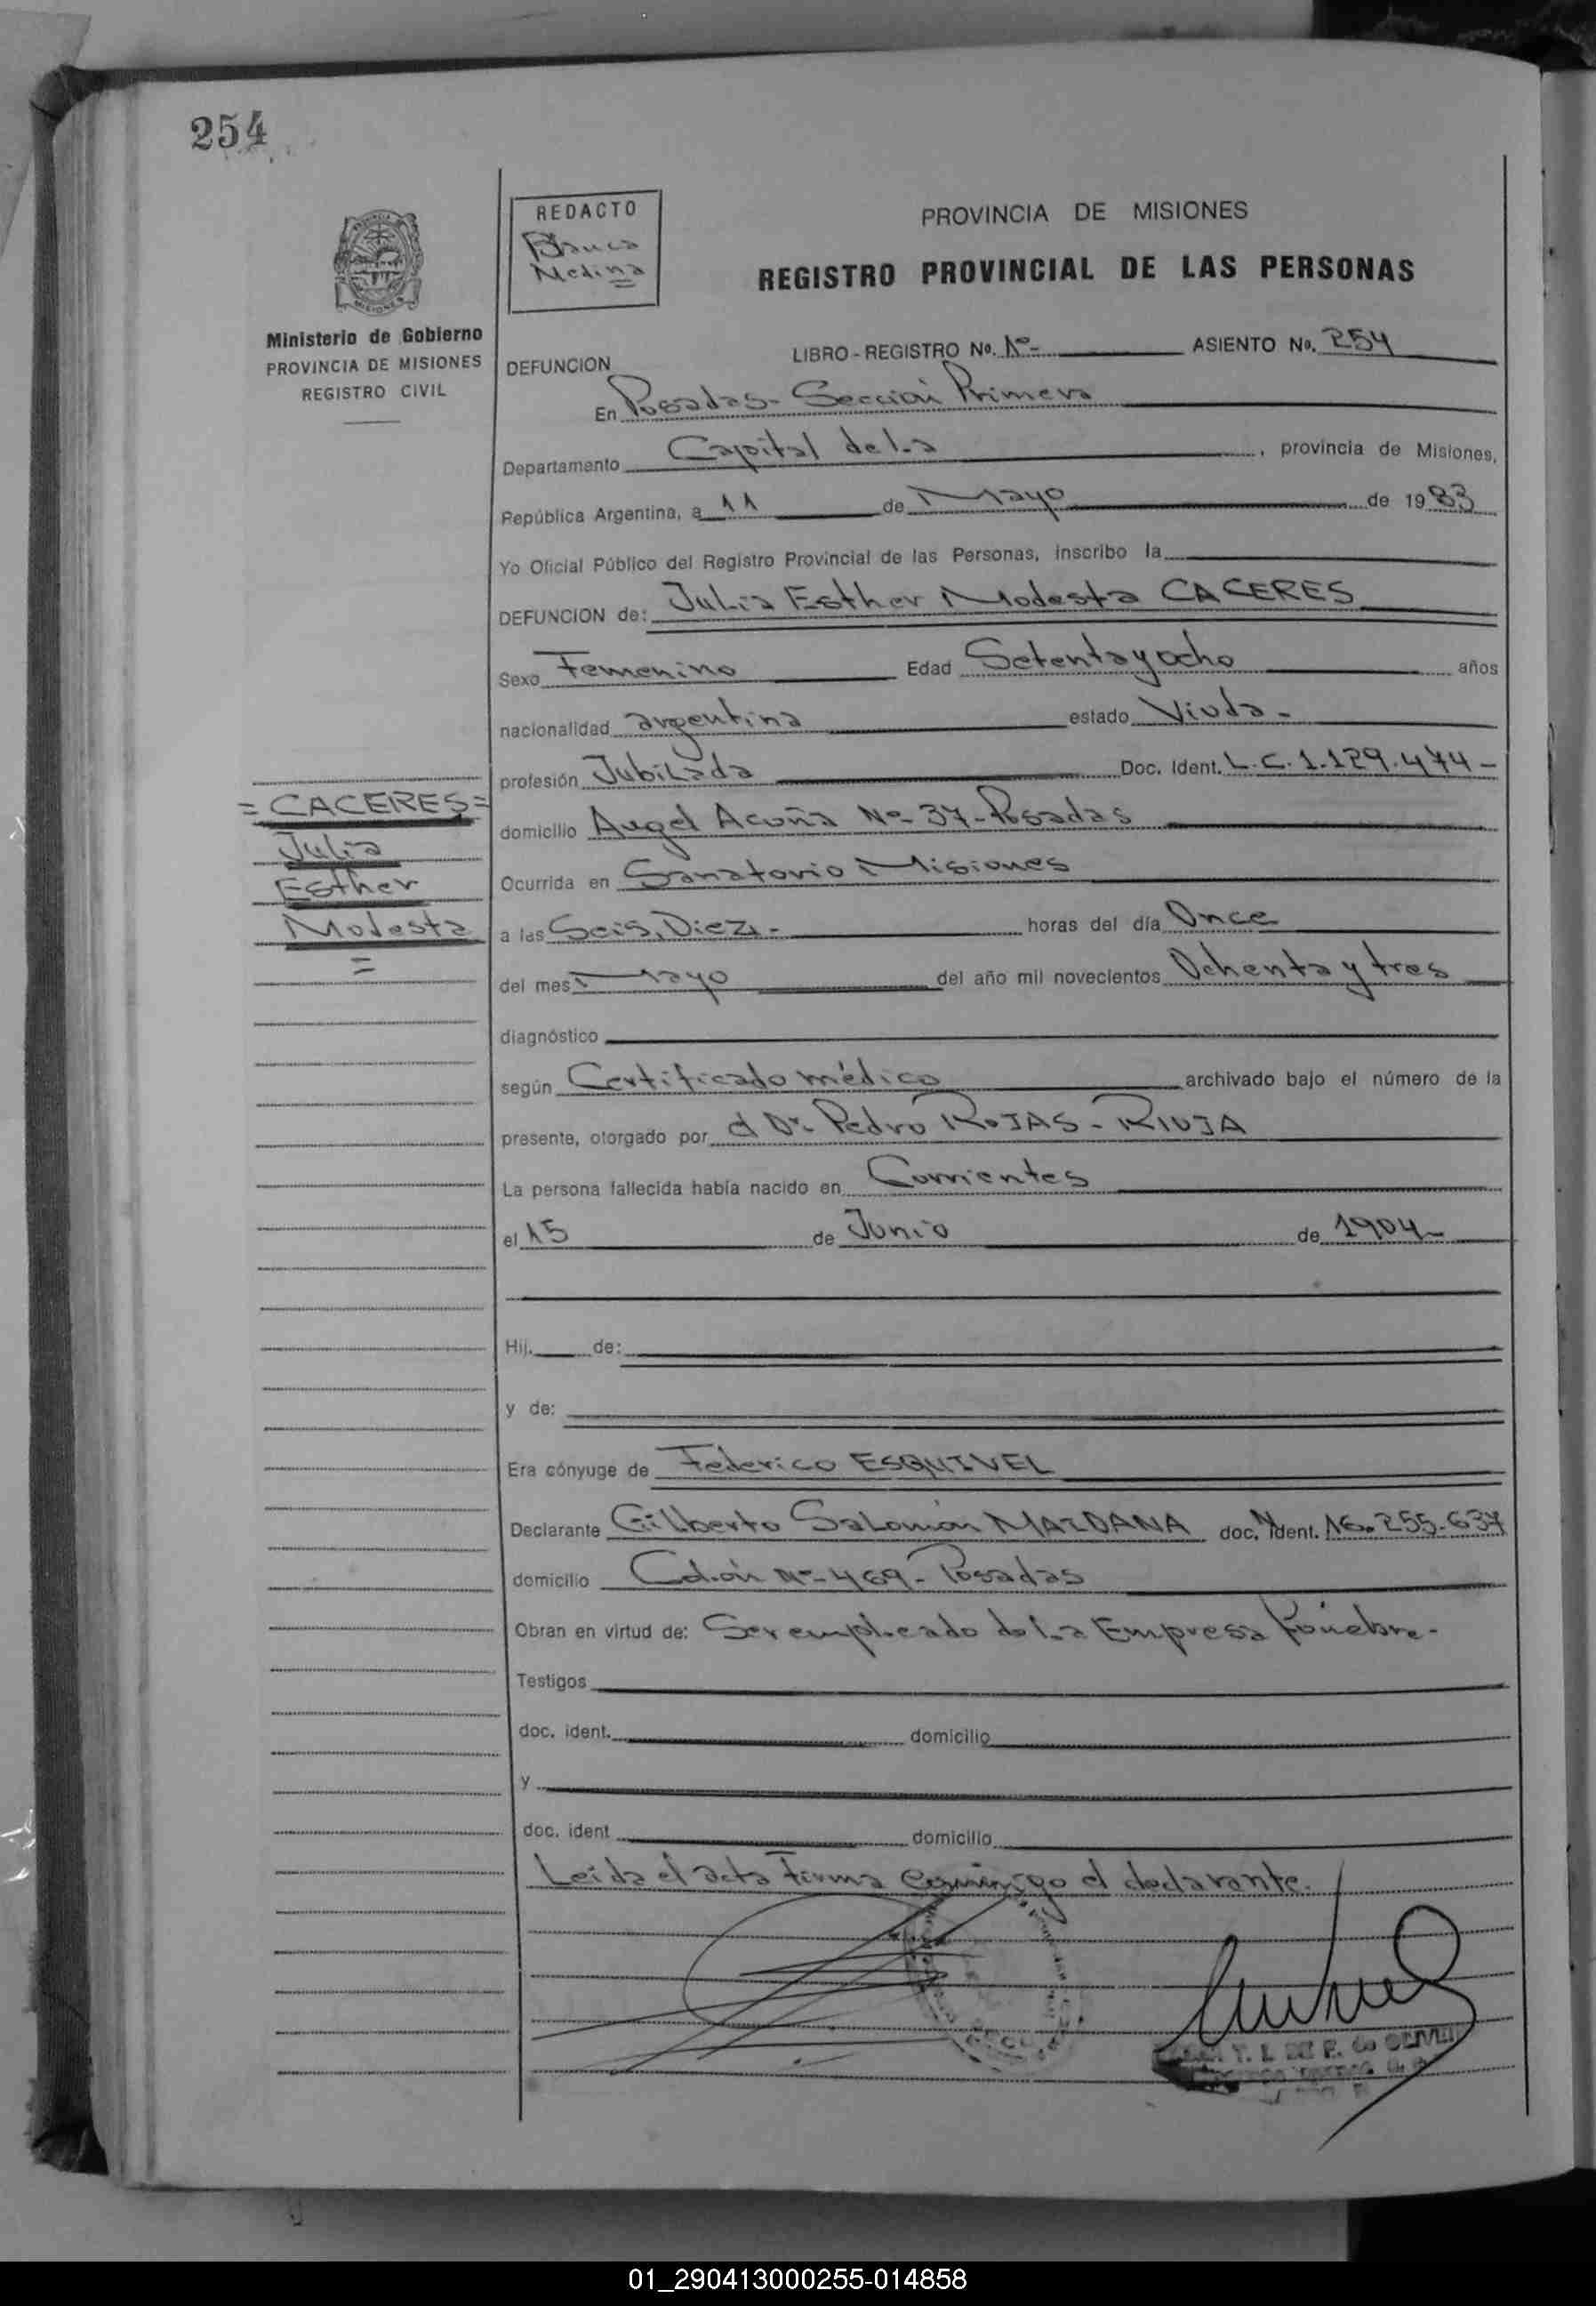 254
REDACTO
Blanca
Medina
PROVINCIA DE MISIONES
REGISTRO PROVINCIAL DE LAS PERSONAS
Ministerio de Gobierno
PROVINCIA DE MISIONES
REGISTRO CIVIL
DEFUNCION LIBRO - REGISTRO No. 1º- ASIENTO No. 254
En Posadas- Sección Primera
Departamento Capital de la , provincia de Misiones,
República Argentina, a 11 de Mayo de 1983
Yo Oficial Público del Registro Provincial de las Personas, inscribo la
DEFUNCION de: Julia Esther Modesta CACERES
Sexo Femenino Edad Setenta y ocho años
nacionalidad argentina estado Viuda-
profesión Jubilada Doc. Ident. L.C. 1.129.474-
= CACERES =
Julia
Esther
Modesta
=
domicilio Angel Acuña Nº- 37- Posadas
Ocurrida en Sanatorio Misiones
a las Seis, Diez- horas del día Once
del mes Mayo del año mil novecientos Ochenta y tres
diagnóstico
según Certificado médico archivado bajo el número de la
presente, otorgado por el Dr. Pedro ROJAS - RIUJA
La persona fallecida había nacido en Corrientes
el 15 de Junio de 1904-
Hij. de:
y de:
Era cónyuge de Federico ESQUIVEL
Declarante Gilberto Salomón MAIDANA doc. Ident. Nº 16.255.637
domicilio Colón Nº- 469- Posadas
Obran en virtud de: Ser empleado de la Empresa Fúnebre-
Testigos
doc. ident. domicilio
y
doc. ident domicilio
Leida el acta firma conmigo el declarante.
01_290413000255-014858